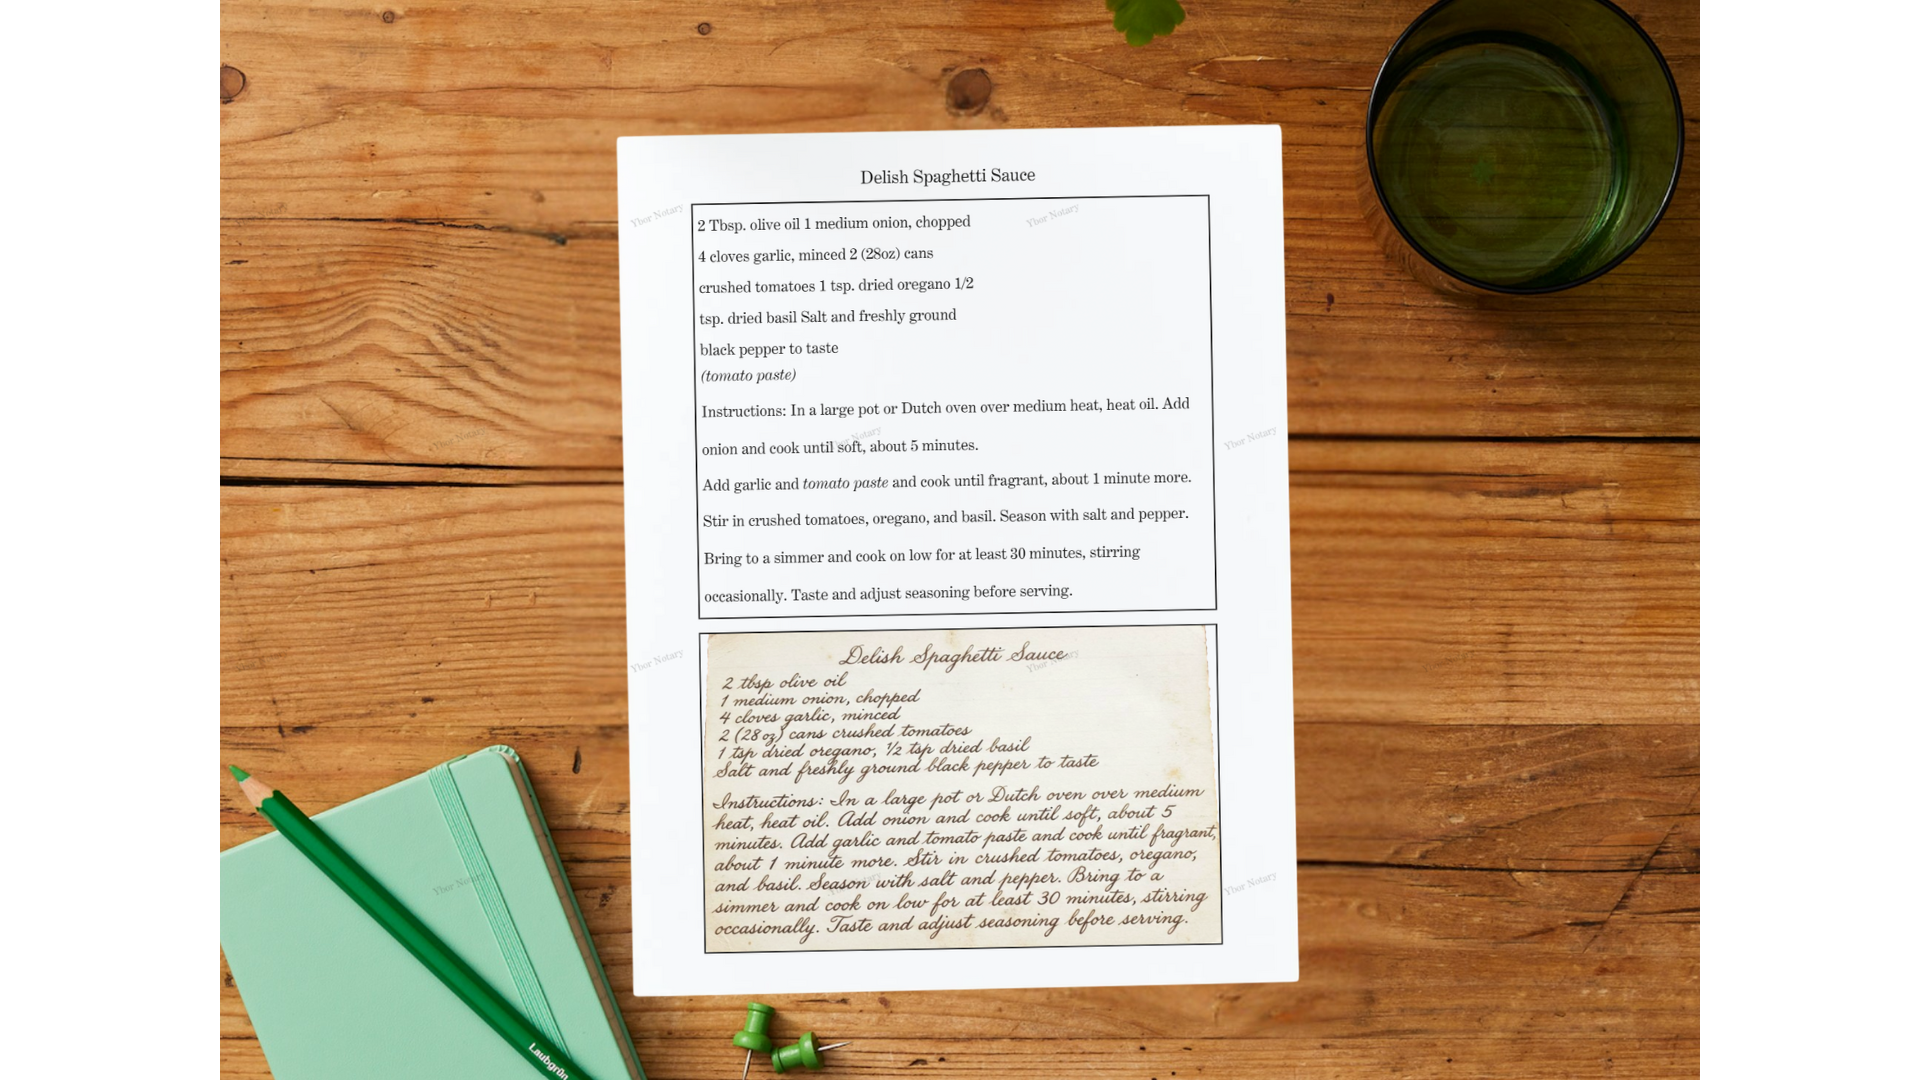 Delish Spaghetti Sauce
2 Tbsp. olive oil 1 medium onion, chopped
4 cloves garlic, minced 2 (28oz) cans
crushed tomatoes 1 tsp. dried oregano 1/2
tsp. dried basil Salt and freshly ground
black pepper to taste
(tomato paste)
Instructions: In a large pot or Dutch oven over medium heat, heat oil. Add
onion and cook until soft, about 5 minutes.
Add garlic and tomato paste and cook until fragrant, about 1 minute more.
Stir in crushed tomatoes, oregano, and basil. Season with salt and pepper.
Bring to a simmer and cook on low for at least 30 minutes, stirring
occasionally. Taste and adjust seasoning before serving.
Delish Spaghetti Sauce
2 tbsp olive oil
1 medium onion, chopped
4 cloves garlic, minced
2 (28 oz) cans crushed tomatoes
1 tsp dried oregano, ½ tsp dried basil
Salt and freshly ground black pepper to taste
Instructions: In a large pot or Dutch oven over medium
heat, heat oil. Add onion and cook until soft, about 5
minutes. Add garlic and tomato paste and cook until fragrant,
about 1 minute more. Stir in crushed tomatoes, oregano,
and basil. Season with salt and pepper. Bring to a
simmer and cook on low for at least 30 minutes, stirring
occasionally. Taste and adjust seasoning before serving.
Laubgrün
Ybor Notary
Ybor Notary
Ybor Notary
Ybor Notary
Ybor Notary
Ybor Notary
Ybor Notary
Ybor Notary
Ybor Notary
Ybor Notary